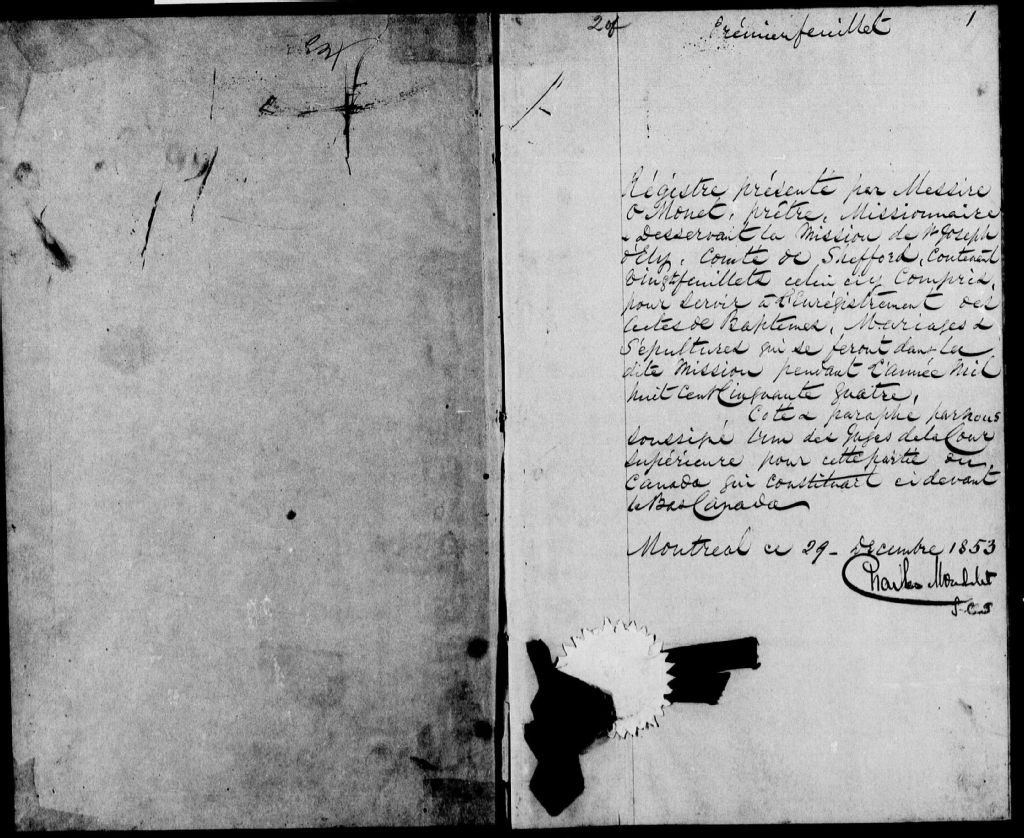 24
2df
Prémier feuillet
1
Régistre présenté par Messire
O Monet, prêtre, Missionnaire
Desservant la Mission de St Joseph
d'Ely, Comté de Shefford, Contenant
Vingt feuillets celui ci y Compris,
pour Servir à l'Enrégistrement des
Actes de Baptêmes, Mariages &
Sépultures qui se feront dans la
dite Mission pendant l'année Mil
huit Cent Cinquante quatre,
Coté & paraphé par nous
soussigné l'un des Juges de la Cour
Supérieure pour cette partie du
Canada qui constituait ci devant
le Bas Canada
Montreal ce 29 - Décembre 1853
Charles Mondelet
J. C. S